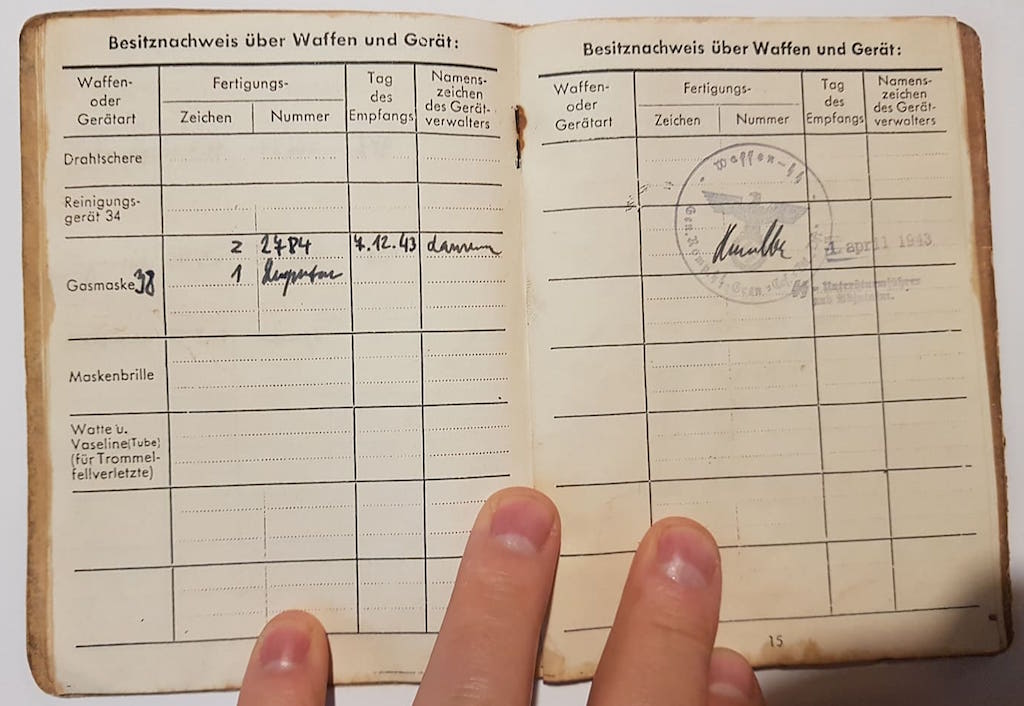 Besitznachweis über Waffen und Gerät:
Waffen-
oder
Gerätart
Fertigungs-
Zeichen
Nummer
Tag
des
Empfangs
Namens-
zeichen
des Gerät-
verwalters
Drahtschere
Reinigungs-
gerät 34
Gasmaske 38
2 2784 7.12.43
1
Maskenbrille
Watte u.
Vaseline (Tube)
(für Trommel-
fellverletzte)
Besitznachweis über Waffen und Gerät:
Waffen-
oder
Gerätart
Fertigungs-
Zeichen
Nummer
Tag
des
Empfangs
Namens-
zeichen
des Gerät-
verwalters
Waffen-SS
1. april 1943
SS-Untersturmführer
15